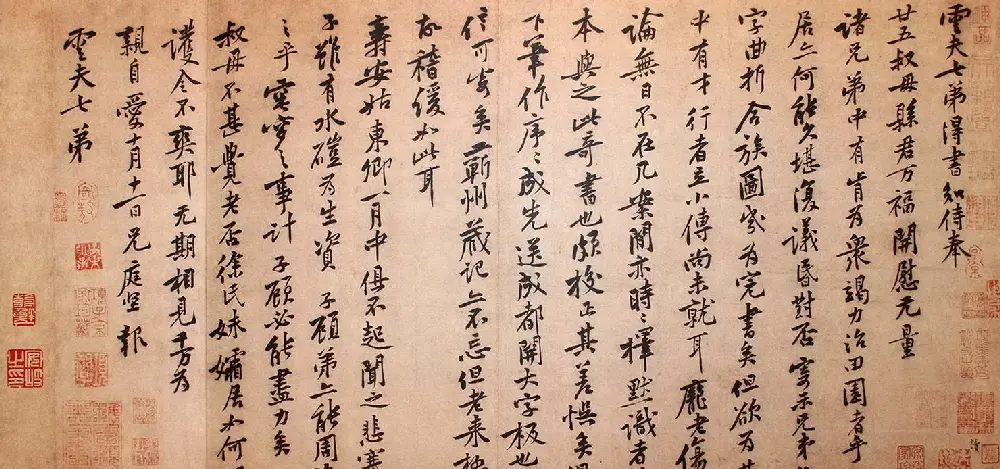 雲夫七弟得書知侍奉
廿五叔母縣君万福開慰无量
諸兄弟中有肯為衆竭力治田園者乎
居亡何能久堪復議昏對否寄示兄弟
字曲折合族圖幾為完書矣但欲為
中有才行者立小傳尚未就耳龐老傷
論無日不在几案間亦時〻擇默識者
本與之此奇書也頗校正其差悮矣
下筆作序〻成先送成都開大字板也
信可寄矣蘄州藏記亦不忘但老来極
故稽緩如此耳
壽安姑東卿一月中俱不起聞之悲塞
子雖有水磑為生資子顧弟亦能周
之乎窀穸之事計子顧必能盡力矣
叔母不甚覺老否徐氏妹孀居如何
護令不爽耶无期相見千万為
親自愛十月十一日兄庭堅報
雲夫七弟